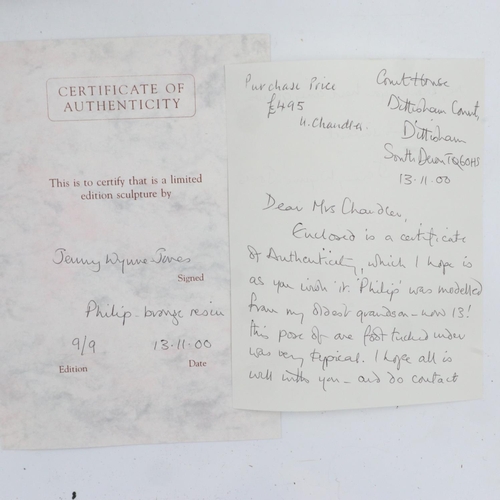 CERTIFICATE OF
AUTHENTICITY
This is to certify that is a limited
edition sculpture by
Jenny Wynne-Jones
Signed
Philip - bronze resin
9/9 13.11.00
Edition Date
Purchase Price
£495
H. Chandler.
Court House
Dittisham Court,
Dittisham
South Devon TQ6 0HS
13.11.00
Dear Mrs Chandler,
Enclosed is a certificate
of Authenticity, which I hope is
as you wish it. 'Philip' was modelled
from my oldest grandson - now 13!
this pose of one foot tucked under
was very typical. I hope all is
well with you - and do contact